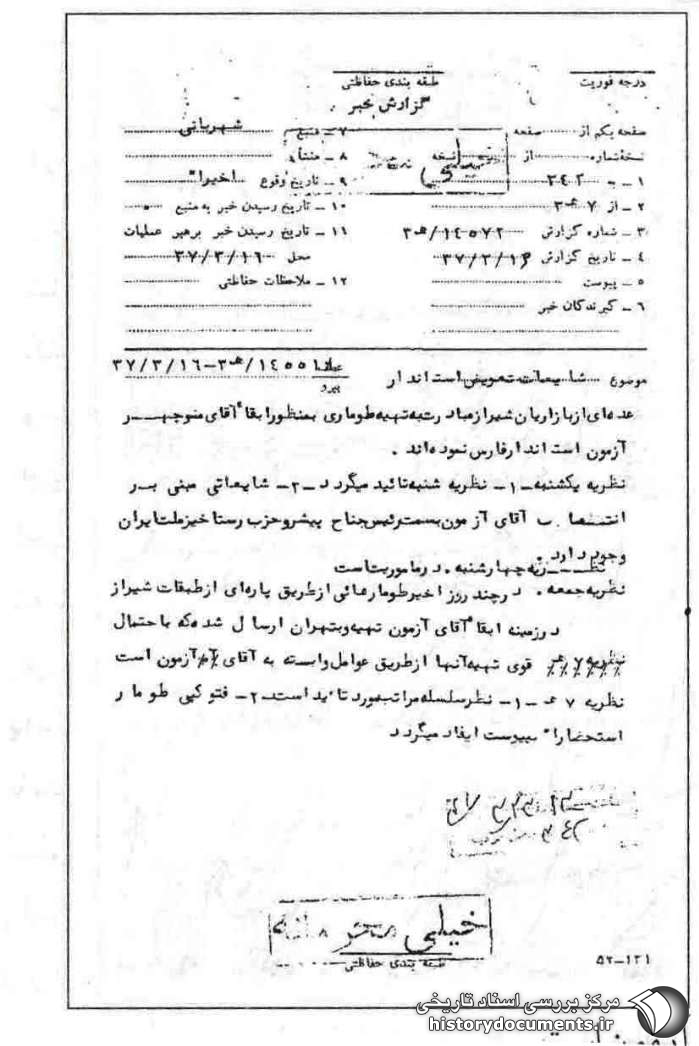 درجه فوریت
طبقه بندی حفاظتی
گزارش خبر
صفحه یکم از صفحه
نسخه شماره از نسخه
۱ - به ۳۴۲
۲ - از ۷ ه‍ ۳
۳ - شماره گزارش ۱۴۵۷۲/ه‍ ۳
۴ - تاریخ گزارش ۳۷/۳/۱۶
۵ - پیوست
۶ - گیرندگان خبر
۷ - منبع شهربانی
۸ - منشأ
۹ - تاریخ وقوع اخیرا"
۱۰ - تاریخ رسیدن خبر به منبع
۱۱ - تاریخ رسیدن خبر برهبر عملیات
محل ۳۷/۳/۱۶
۱۲ - ملاحظات حفاظتی
خیلی محرمانه
موضوع شایعات تعویض استاندار
عطف ۱۴۵۵۱/ه‍ ۳-۳۷/۳/۱۶
پیرو
عده‌ای از بازاریان شیراز مبادرت به تهیه طوماری بمنظور ابقاء آقای منوچهر
آزمون استاندار فارس نموده‌اند .
نظریه یکشنبه - ۱ - نظریه شنبه تائید میگردد - ۲ - شایعاتی مبنی بر
انتصاب آقای آزمون بسمت رئیس جناح پیشرو حزب رستاخیز ملت ایران
وجود دارد .
نظریه چهارشنبه . در ماموریت است
نظریه جمعه . در چند روز اخیر طومارهائی از طریق پاره‌ای از طبقات شیراز
در زمینه ابقاء آقای آزمون تهیه و بتهران ارسال شده که با حتمال
قوی تهیه آنها از طریق عوامل وابسته به آقای آزمون است
نظریه ۷ ه‍ - ۱ - نظر سلسله مراتب مورد تائید است - ۲ - فتوکپی طومار
استحضارا" بپیوست ایفاد میگردد
خیلی محرمانه
طبقه بندی حفاظتی
۵۲-۱۲۱
مرکز بررسی اسناد تاریخی
historydocuments.ir